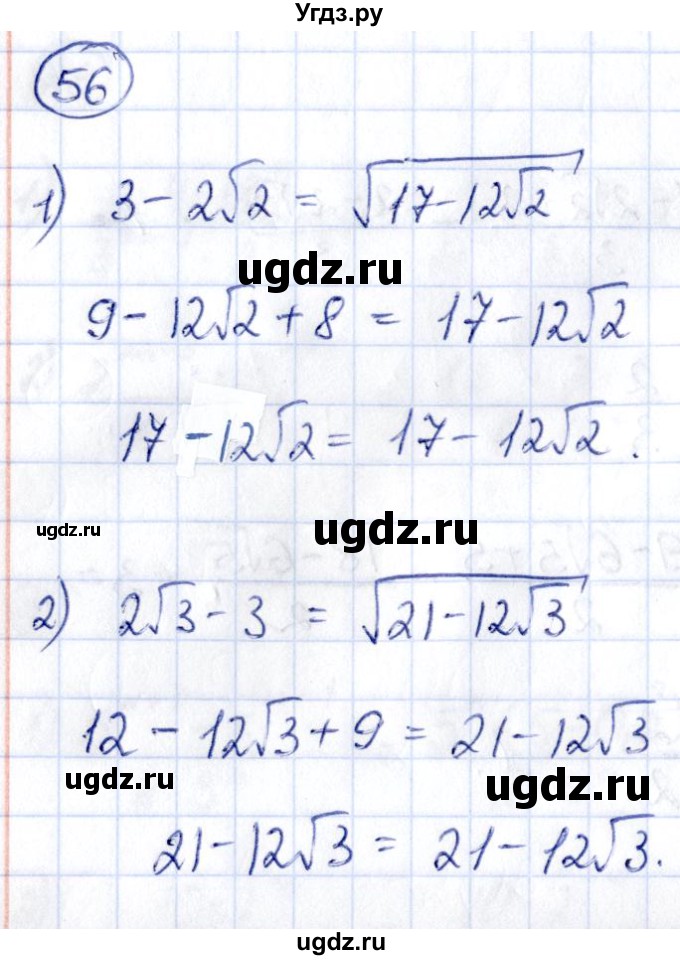 Угдз.ру
56
1) 3 - 2√2 = √(17 - 12√2)
ugdz.ru
9 - 12√2 + 8 = 17 - 12√2
17 - 12√2 = 17 - 12√2.
ugdz.ru
ugdz.ru
2) 2√3 - 3 = √(21 - 12√3)
12 - 12√3 + 9 = 21 - 12√3
ugdz.ru
ugdz.ru
21 - 12√3 = 21 - 12√3.
ugdz.ru